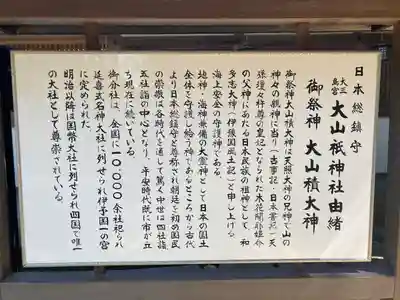 日本総鎮守
大三島宮 大山祇神社由緒
御祭神 大山積大神
御祭神大山積大神は天照大神の兄神で山の
神々の親神に当り(古事記・日本書紀)天
孫瓊々杵尊の皇妃となられた木花開耶姫命
の父神にあたる日本民族の祖神として、和
多志大神(伊豫国風土記)と申し上げる
海上安全の守護神である。
地神・海神兼備の大霊神として日本の国土
全体を守護し給う神であるところから古代
より日本総鎮守と尊称され朝廷を初め国民
の崇敬は各時代を通して篤く中世は四社詣
五社詣の中心となり、平安時代既に市が立
ち現在に続いている。
御分社は、全国に一〇,〇〇〇余社祀られ
延喜式名神大社に列せられ伊予国一の宮
に定められた。
明治以降は国幣大社に列せられ四国で唯一
の大社として尊崇されている。